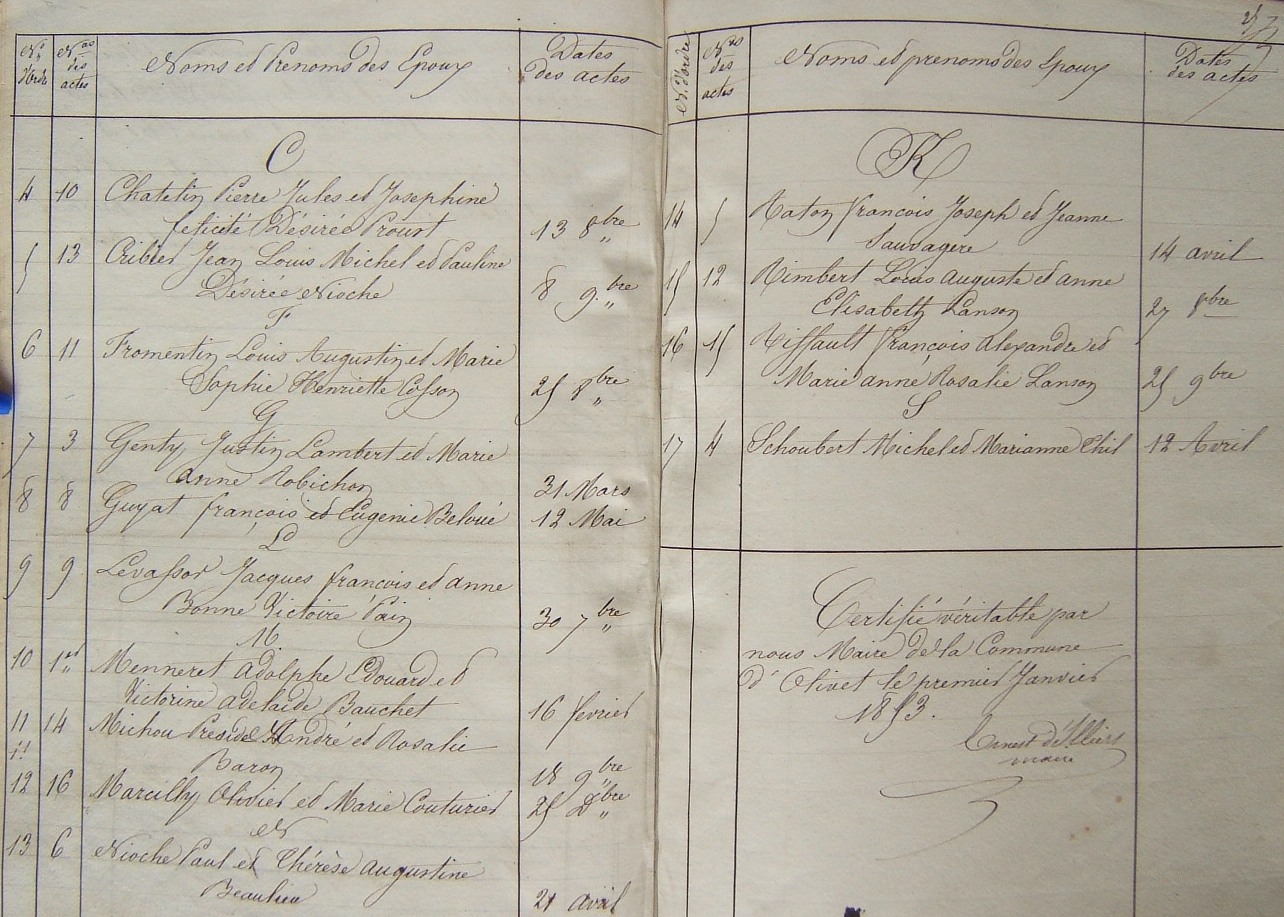 Nos d'ordre
Nos des actes
Noms et Prenoms des Epoux
Dates des actes
C
4 10 Chatelin Pierre Jules et Josephine
felicité Désirée Proust 13 8bre
5 13 Cribier Jean Louis Michel et Pauline
Désirée Nioche 8 9bre
F
6 11 Fromentin Louis Augustin et Marie
Sophie Henriette Cosson 25 8bre
G
7 3 Genty Justin Lambert et Marie
Anne Robichon 31 Mars
8 8 Guyat françois et Eugenie Beloué 12 Mai
L
9 9 Levassor Jacques françois et anne
Bonne Victoire Pain 30 7bre
M
10 1er Menneret adolphe Edouard et
Victorine adelaïde Bauchet 16 fevrier
11 14 Michou André et Rosalie
Baron 18 9bre
12 16 Marcilly Olivier et Marie Couturier 25 Xbre
N
13 6 Nioche Paul et Thérèse augustine
Beaulieu 21 avril
N. d'ordre
Nos des actes
Noms et prenoms des Epoux
Dates des actes
R
14 5 Raton françois Joseph et Jeanne
Sauvagere 14 avril
15 12 Rimbert Louis auguste et anne
Elisabeth Lanson 27 8bre
16 15 Riffault françois alexandre et
Marie anne Rosalie Lanson 25 9bre
S
17 4 Schoubert Michel et Marianne Thil 12 Avril
Certifié véritable par
nous Maire de la Commune
d'Olivet le premier Janvier
1853.
Ernest d'Illiers
maire